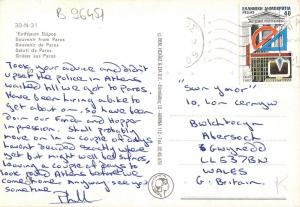 B 96451
30-N-31
"Ενθύμιον Πάρος"
Souvenir from Paros
Souvenir de Paros
Saluti da Paros
Grüsse aus Paros
Took your advice and didn't
upset the police in Athens,
waited till we got to Paros.
Have been hiring a bike to
get about on. So have been
doin our Fonda and Hopper
impression. Shall probably
move on in a couple of days
haven't decided exactly where
yet but might well be
leaving a couple of days to
look round Athens before we
come home. Anyway see you
sometime
ΕΛΛΗΝΙΚΗ ΔΗΜΟΚΡΑΤΙΑ
HELLAS
40
"Swn y mor"
10, Lon Cernyw
Bwlchtocyn
Abersoch
Gwynedd
LL53 7BN
WALES
G. Britain